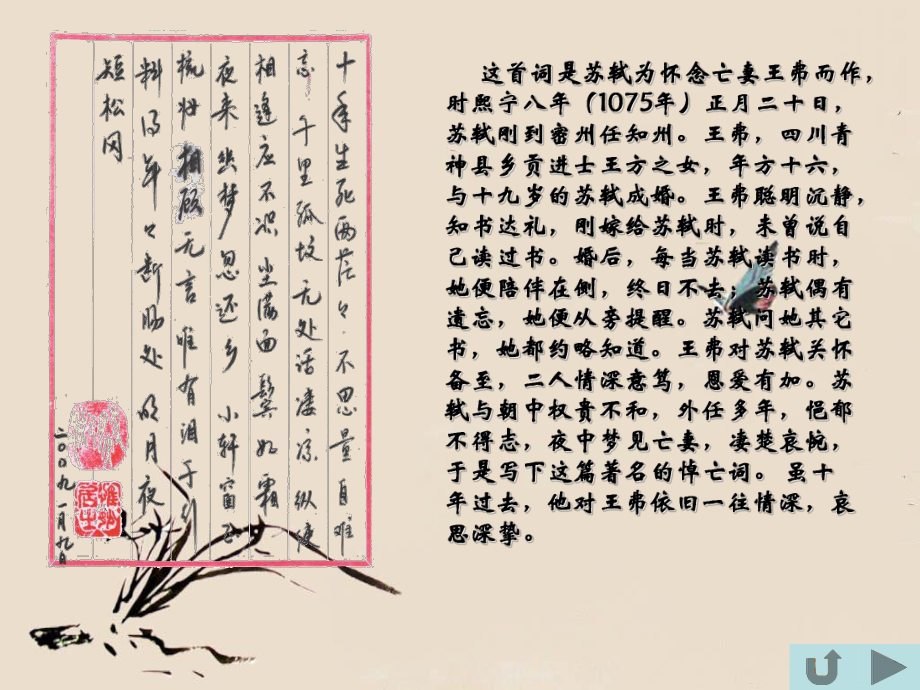 十年生死两茫々·不思量 自难
忘·千里孤坟 无处话凄凉 纵使
相逢应不识 尘满面 鬓如霜
夜来幽梦忽还乡 小轩窗 正
梳妆 相顾无言 唯有泪千行
料得年々断肠处 明月夜
短松冈
二00九 一月九日
居士
这首词是苏轼为怀念亡妻王弗而作，
时熙宁八年（1075年）正月二十日，
苏轼刚到密州任知州。王弗，四川青
神县乡贡进士王方之女，年方十六，
与十九岁的苏轼成婚。王弗聪明沉静，
知书达礼，刚嫁给苏轼时，未曾说自
己读过书。婚后，每当苏轼读书时，
她便陪伴在侧，终日不去；苏轼偶有
遗忘，她便从旁提醒。苏轼问她其它
书，她都约略知道。王弗对苏轼关怀
备至，二人情深意笃，恩爱有加。苏
轼与朝中权贵不和，外任多年，悒郁
不得志，夜中梦见亡妻，凄楚哀惋，
于是写下这篇著名的悼亡词。虽十
年过去，他对王弗依旧一往情深，哀
思深挚。